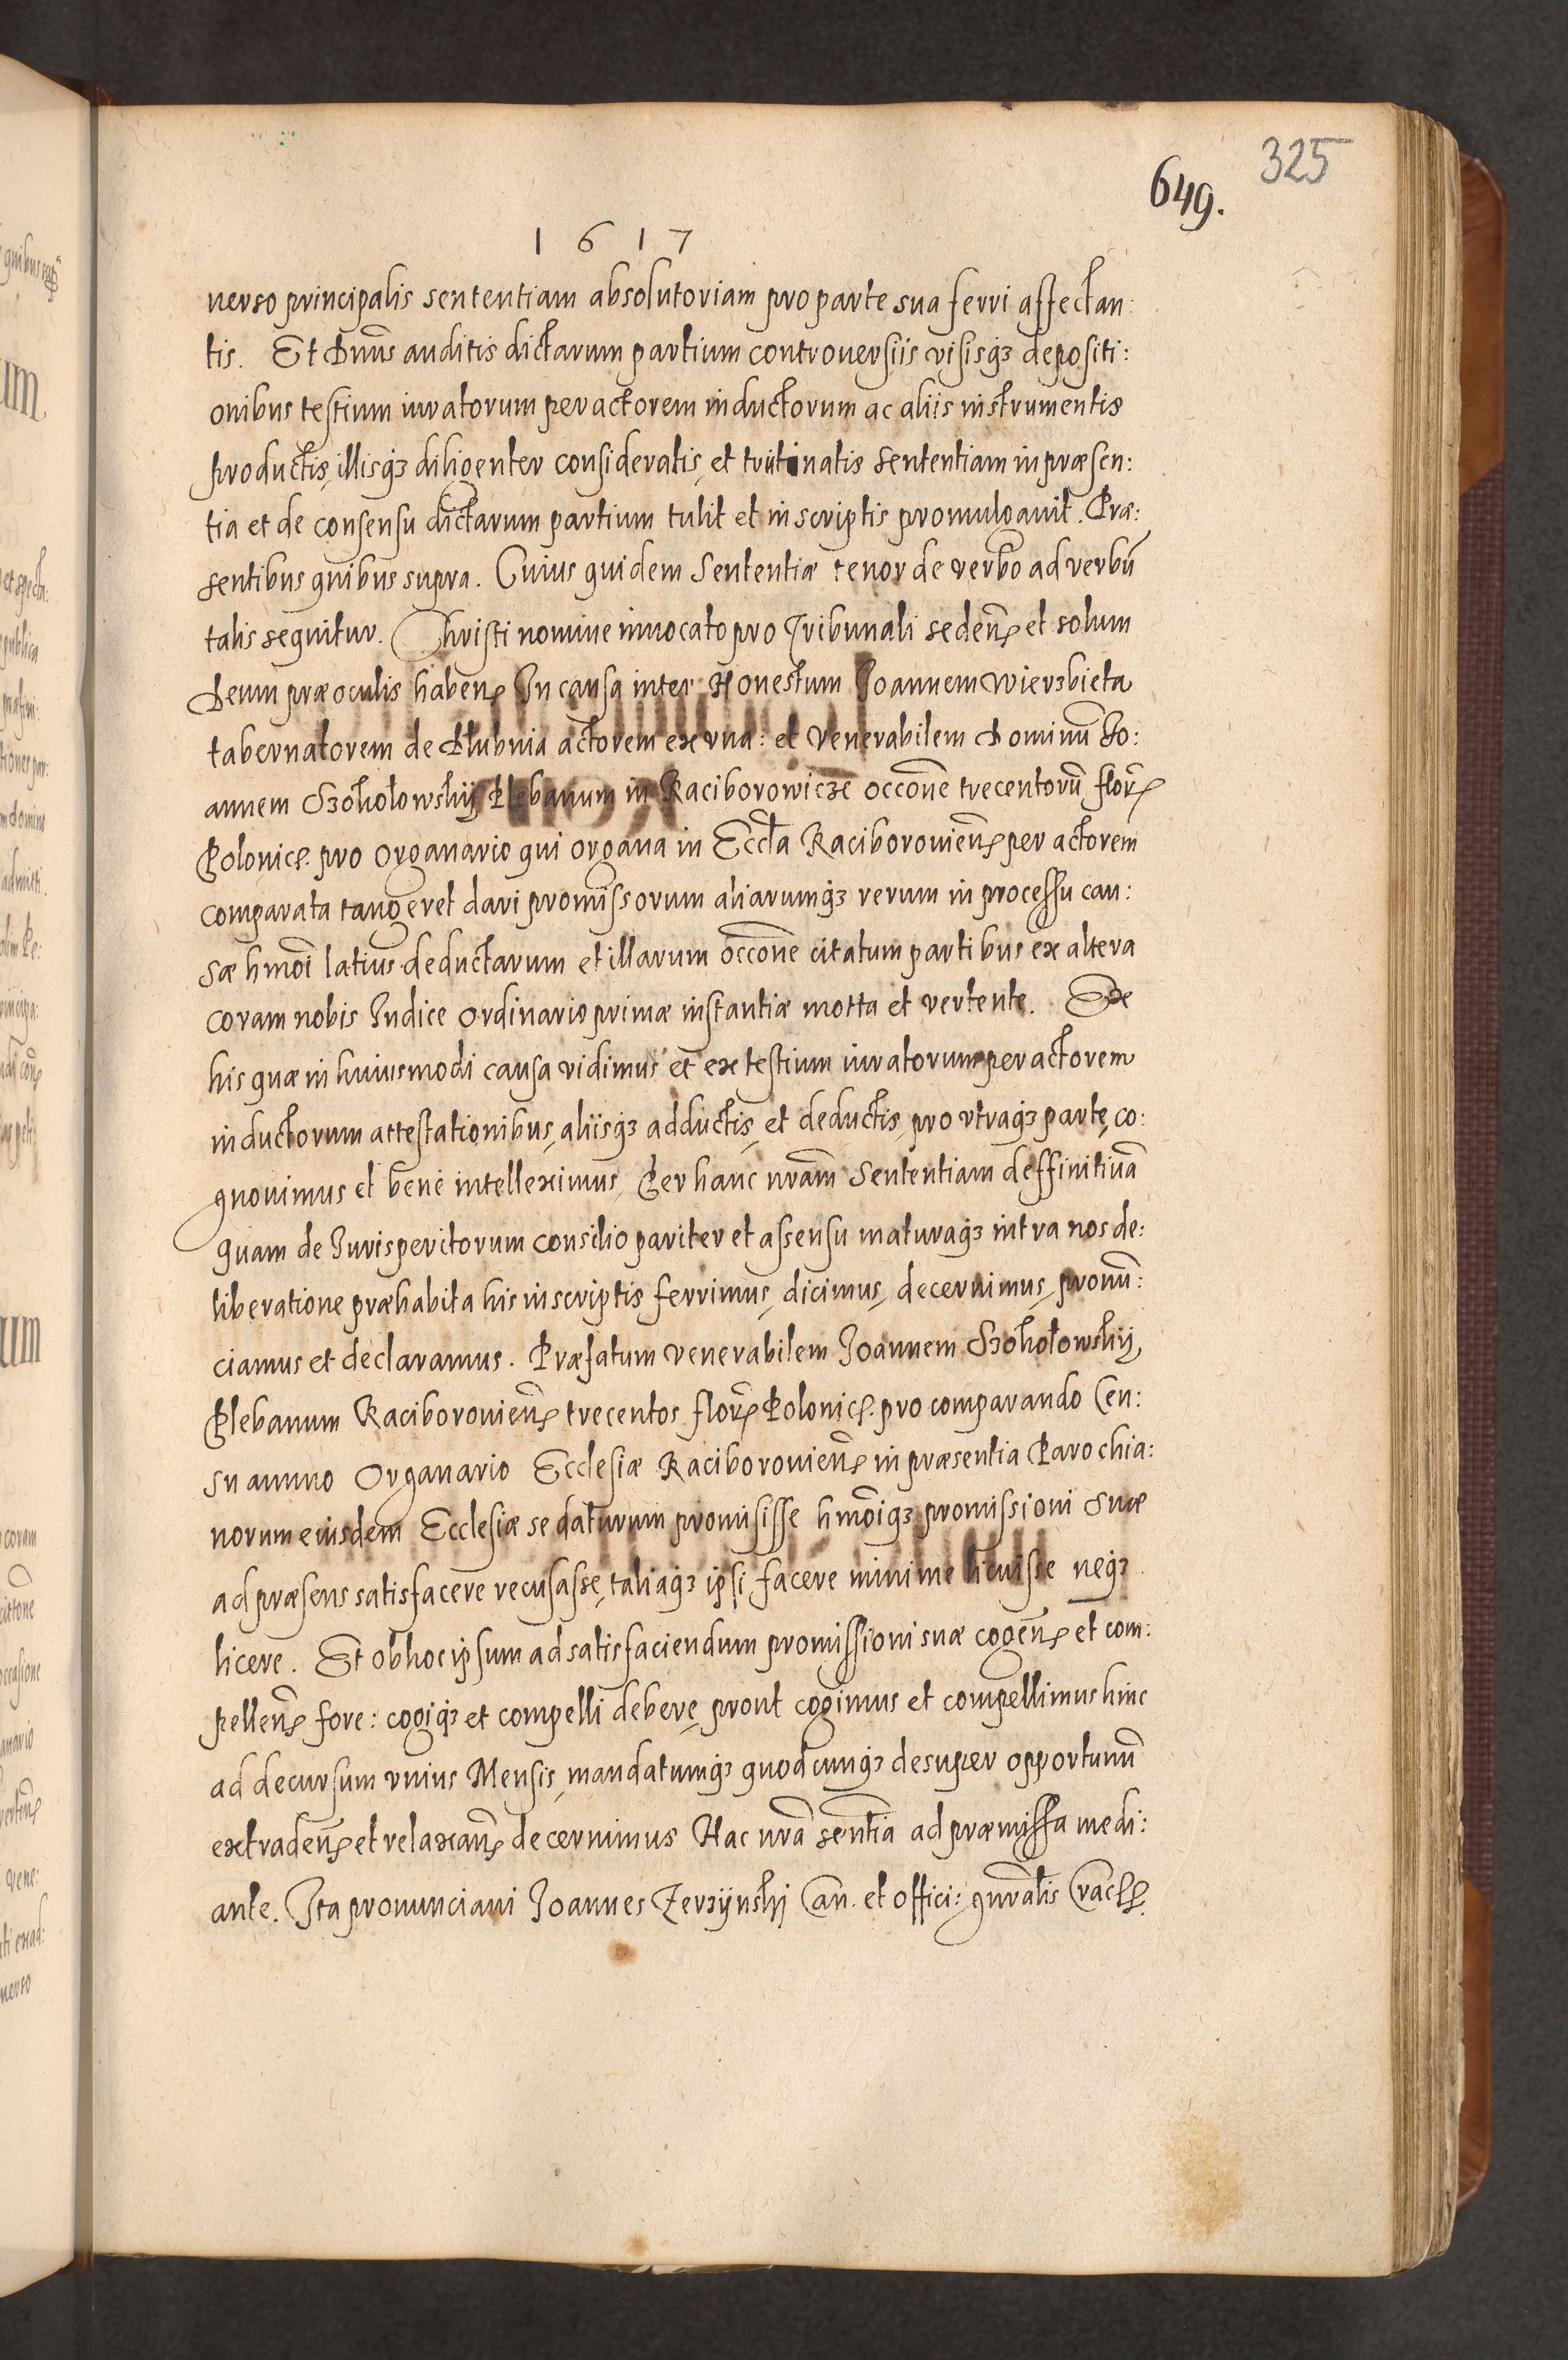 325
649.
1617
uerso principalis sententiam absolutoriam pro parte sua ferri affectan:
tis. Et Dnus auditis dictarum partium controuersiis visisq3 depositi:
onibus testium iuratorum per actorem inductorum ac aliis instrumentis
productis, illisq3 diligenter consideratis, et trutinatis sententiam in præsen:
tia et de consensu dictarum partium tulit et in scriptis promulgauit. Præ:
sentibus quibus supra. Cuius quidem Sententiæ tenor de verbo ad verbū
talis sequitur. Christi nomine inuocato pro Tribunali sedeñ et solum
Deum præ oculis habeñ In causa inter Honestum Joannem Wierzbieta
tabernatorem de Dłubnia actorem ex vna: et Venerabilem Dominū Jo:
annem Sokołowskij Plebanum in Raciborowicze occōne trecentorū florꝭ
Polonicꝭ. pro Organario qui organa in Eccła Raciborouieñ per actorem
comparata tangeret dari promissorum aliarumq3 rerum in processu cau:
sæ hmōi latius deductarum et illarum occōne citatum partibus ex altera
coram nobis Judice Ordinario primæ instantiæ motta et vertente. De
his quæ in huiusmodi causa vidimus et ex testium iuratorum per actorem
inductorum attestationibus, aliisq3 adductis, et deductis, pro vtraq3 parte, co:
gnouimus et bene intelleximus, Per hanc nrām Sententiam deffinitiuā
quam de Jurisperitorum consilio pariter et assensu maturaq3 intra nos de:
liberatione præhabita his in scriptis ferrimus, dicimus, decernimus, pronū:
ciamus et declaramus. Præfatum venerabilem Joannem Sokołowskij,
Plebanum Raciborouieñ trecentos florꝭ Polonicꝭ. pro comparando Cen:
su annuo Organario Ecclesiæ Raciborouieñ in præsentia Parochia:
norum eiusdem Ecclesiæ se daturum promisisse hmōiq3 promissioni suæ
ad præsens satisfacere recusasse, taliaq3 ipsi facere minime licuisse neq3
licere. Et ob hoc ipsum ad satisfaciendum promissioni suæ cogeñ et com:
pelleñ fore: cogiq3 et compelli debere, prout cogimus et compellimus hinc
ad decursum vnius Mensis, mandatumq3 quodcunq3 desuper opportunū
extradeñ et relaxañ decernimus Hac nrā sentīa ad præmissa medi:
ante. Ita pronunciaui Joannes Zerzijnskj Can. et offici: gnrālis Cracꝭ.